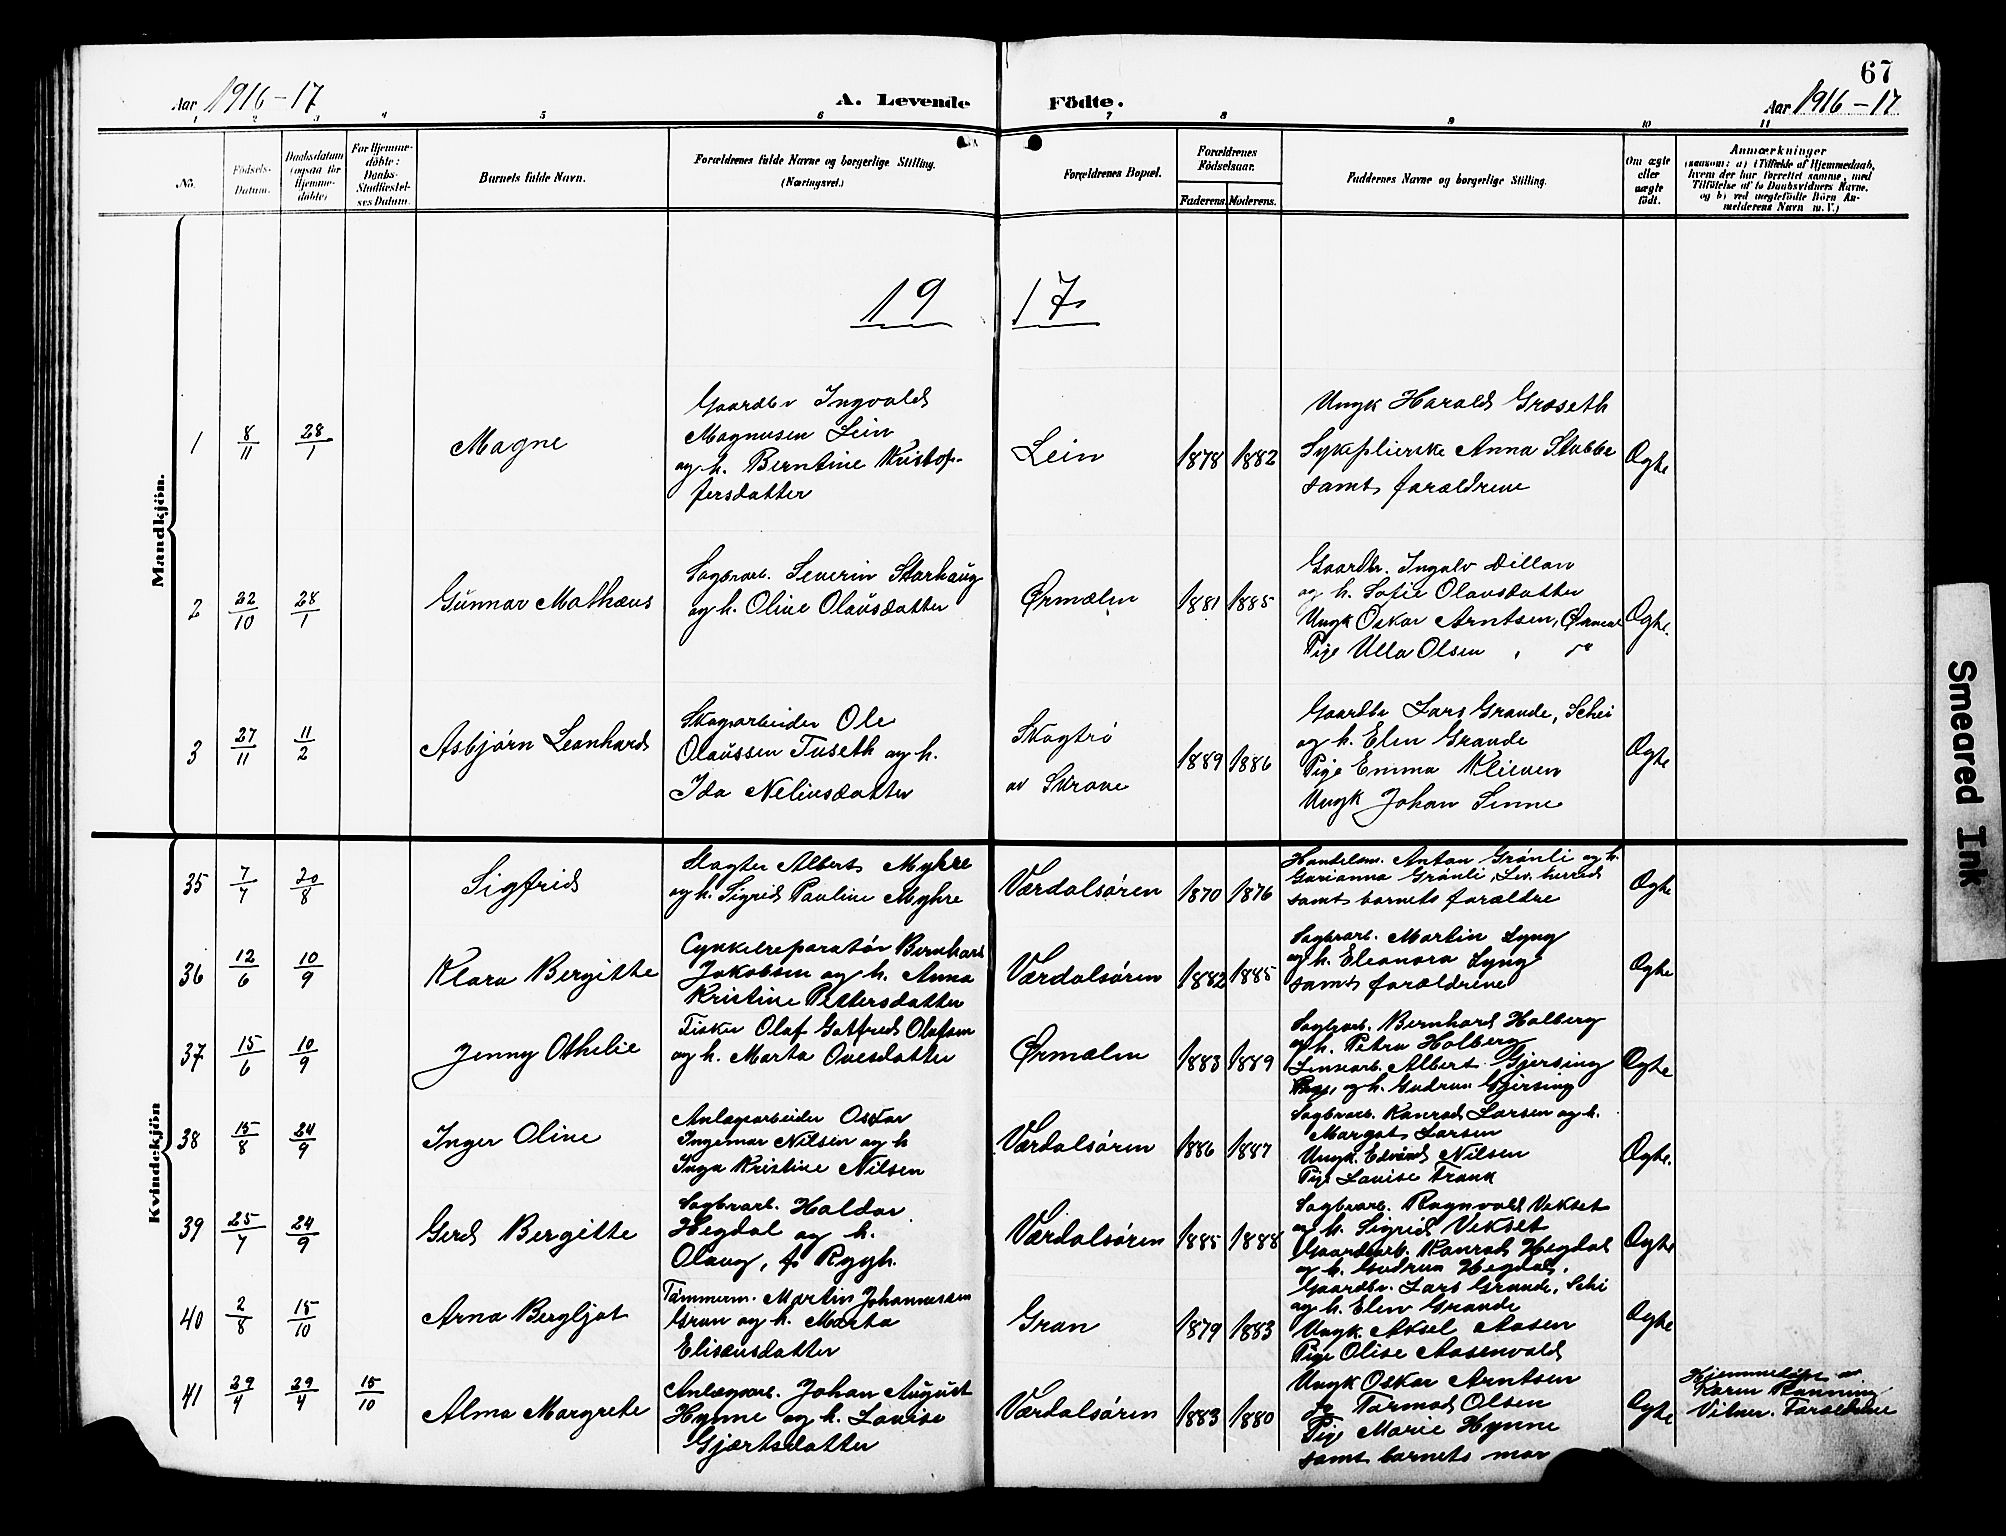 67
Aar 1916-17 A. Levende Födte. Aar 1916-17
1 2 3 4 5 6 7 8 9 10 11
No. Födsels-Datum. Daabsdatum (ogsaa for Hjemmedöbte) For Hjemmedöbte: Daabs-Stadfæstelses Datum. Barnets fulde Navn. Forældrenes fulde Navne og borgerlige Stilling. (Næringsvei.) Forældrenes Bopæl. Forældrenes Födselsaar. Faderens. Moderens. Faddernes Navne og borgerlige Stilling. Om ægte eller uægte født.
Anmærkninger
(saasom: a) i Tilfælde af Hjemmedaab,
hvem der har forrettet samme, med
Tilføielse af to Daabsvidners Navne,
og b) ved uægtefødte Börn Anmelderens Navn m. V.)
19 17
Mandkjön.
1 8/11 28/1 Magne
Gaardbr Ingvald
Magnusen Lein
og h. Berntine Kristof-
fersdatter
Lein 1878 1882
Ungk Harald Græseth
Sykeplierske Anna Stubbe
samt forældrene
Ægte
2 22/10 28/1 Gunnar Mathæus
Sagbrarb. Severin Storhaug
og h. Oline Olausdatter
Ørmælen 1881 1885
Gaardbr. Ingolv Dillan
og h. Sofie Olausdatter
Ungk Oskar Arntsen, Ørmæl
Pige Ulla Olsen
Ægte.
3 27/11 11/2 Asbjørn Leonhard
Skogarbeider Ole
Olaussen Tuseth og h.
Ida Neliusdatter
Skogtrø
av Skrove
1889 1886
Gaardbr Lars Grande, Schei
og h. Elen Grande
Pige Emma Kleven
Ungk Johan Sinne
Ægte
Kvindekjön
35 7/7 20/8 Sigfrid
Slagter Albert Myhre
og h. Sigrid Pauline Myhre
Værdalsøren 1870 1876
Handelsm. Anton Grønli og h.
Garianna Grønli, Lev. herred
samt barnets forældre
Ægte
36 12/6 10/9 Klara Bergitte
Cykkelreparatør Bernhard
Jakobsen og h. Anna
Kristine Pettersdatter
Værdalsøren 1882 1885
Sagbrarb. Martin Lyng
og h. Eleonora Lyng
samt forældrene
Ægte
37 15/6 10/9 Jenny Othelie
Fisker Olaf Gotfred Olafsen
og h. Marta Ovesdatter
Ørmælen 1883 1889
Sagbrarb. Bernhard Holberg
og h. Petra Holberg
Linnearb. Albert Gjersing
og h. Gudrun Gjersing
Ægte
38 15/8 24/9 Inger Oline
Anlægarbeider Oskar
Ingemar Nilsen og h
Inga Kristine Nilsen
Værdalsøren 1886 1887
Sagbrarb. Konrad Larsen og h.
Margot Larsen
Ungk. Edvard Nilsen
Pige Louise Trank
Ægte.
39 25/7 24/9 Gerd Bergitte
Sagbrarb. Haldor
Hegdal og h.
Olaug, f. Rygh.
Værdalsøren 1885 1888
Sagbrarb. Ragnvald Vekset
og h. Sigrid Vekset
Gaardarb. Konrad Hegdal
og h. Gudrun Hegdal.
Ægte
40 2/8 15/10 Arna Bergljot
Tømmerm. Martin Johannessen
Gran og h. Marta
Elisæusdatter
Gran 1879 1883
Gaardbr. Lars Grande, Schi
og h. Elen Grande
Ungk. Aksel Aasen
Pige Olise Aasenvald
Ægte
41 29/4 29/4 15/10 Alma Margrete
Anlægarb. Johan August
Hynne og h. Lovise
Gjærtsdatter
Værdalsøren 1883 1880
Ungk Oskar Arntsen
Tormod Olsen
Pige Marie Hynne
samt barnets mor
Ægte
Hjemmedøpt av
Karen Rønning
Vitner. Forældrene
Smeared Ink